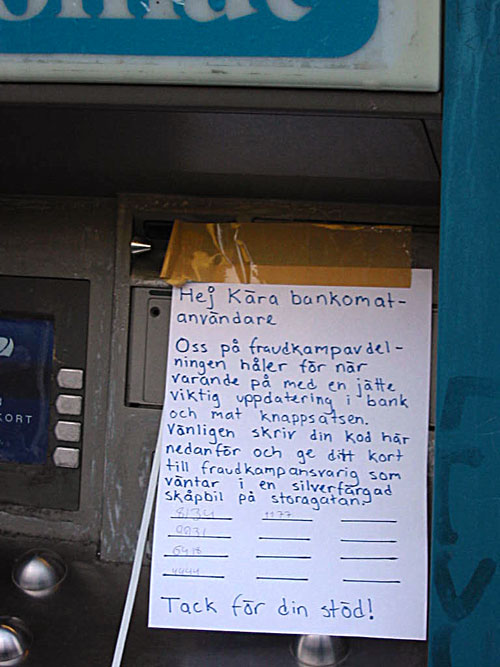 omat
KORT
Hej Kära bankomat-
användare
Oss på fraudkampavdel-
ningen håler för när
varande på med en jätte
viktig uppdatering i bank
och mat knappsatsen.
Vänligen skriv din kod här
nedanför och ge ditt kort
till fraudkampansvarig som
väntar i en silverfärgad
skåpbil på storagatan.
8134 1177
Tack för din stöd!